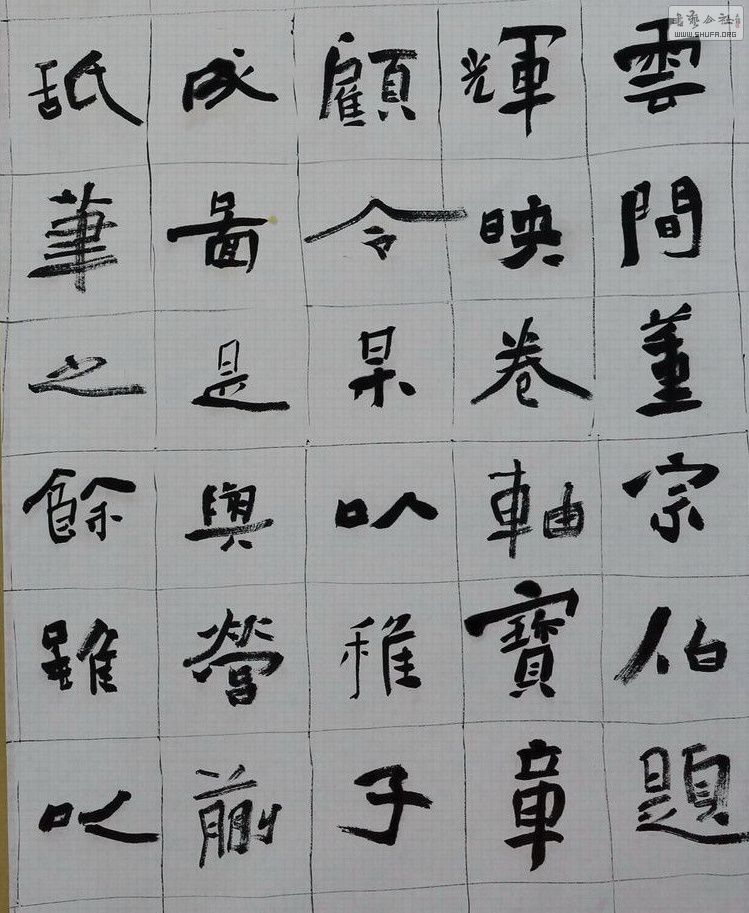 雲間董宗伯題
輝映卷軸寶章
顧令某以稚子
成圖是與營蒯
舐筆之餘雖以
书艺公社
WWW.SHUFA.ORG